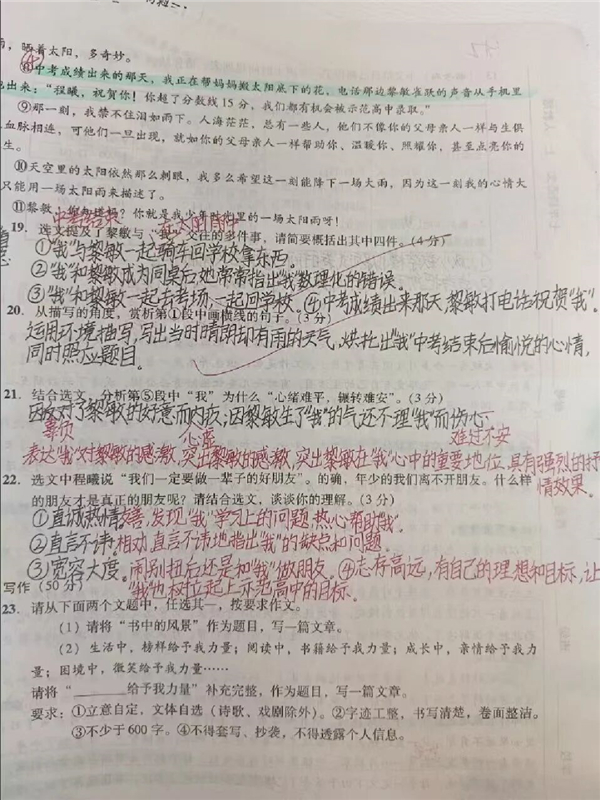 雨，晒着太阳，多奇妙。
⑧中考成绩出来的那天，我正在帮妈妈搬太阳底下的花，电话那边黎敏雀跃的声音从手机里
出来：“程曦，祝贺你！你超了分数线15分，我们都有机会被示范高中录取。”
⑨那一刻，我禁不住泪如雨下。人海茫茫，总有一些人，他们不像你的父母亲人一样与生俱
血脉相连，可他们一旦出现，就如你的父母亲人一样帮助你、温暖你、照耀你，甚至点亮你的
生。
⑩天空里的太阳依然那么刺眼，我多么希望这一刻能降下一场大雨，因为这一刻我的心情大
只能用一场太阳雨来描述了。
中考结束
⑪黎敏，你知道吗？你就是我少年时代里的一场太阳雨呀！
19. 选文提及了黎敏与“我”交往的多件事，请简要概括出其中四件。(4分)
①“我”与黎敏一起骑车回学校拿东西。
②“我”和黎敏成为同桌后，她常常指出“我”数理化的错误。
③“我”和黎敏一起去考场，一起回学校。④中考成绩出来那天，黎敏打电话祝贺“我”。
20. 从描写的角度，赏析第①段中画横线的句子。(3分)
运用环境描写，写出当时晴阴却有雨的天气，烘托出“我”中考结束后愉悦的心情，
同时照应题目。
21. 结合选文，分析第⑤段中“我”为什么“心绪难平，辗转难安”。(3分)
因辜负了黎敏的好意而内疚；因黎敏生了“我”的气还不理“我”而伤心。
辜负 心虚 难过不安
表达“我”对黎敏的感激，突出黎敏的感激，突出黎敏在“我”心中的重要地位，具有强烈的抒
情效果。
22. 选文中程曦说“我们一定要做一辈子的好朋友”。的确，年少的我们离不开朋友。什么样
的朋友才是真正的朋友呢？请结合选文，谈谈你的理解。(3分)
①真诚热情，发现“我”学习上的问题，热心帮助“我”。
②直言不讳。相对，直言不讳地指出“我”的缺点和问题。
③宽容大度。闹别扭后还是和“我”做朋友。④志存高远，有自己的理想和目标，让
“我”也树立起上示范高中的目标。
写作（50分）
23. 请从下面两个文题中，任选其一，按要求作文。
（1）请将“书中的风景”作为题目，写一篇文章。
（2）生活中，榜样给予我力量；阅读中，书籍给予我力量；成长中，亲情给予我力
量；困境中，微笑给予我力量……
请将“______给予我力量”补充完整，作为题目，写一篇文章。
要求：①立意自定，文体自选（诗歌、戏剧除外）。②字迹工整，书写清楚，卷面整洁。
③不少于600字。④不得套写、抄袭，不得透露个人信息。